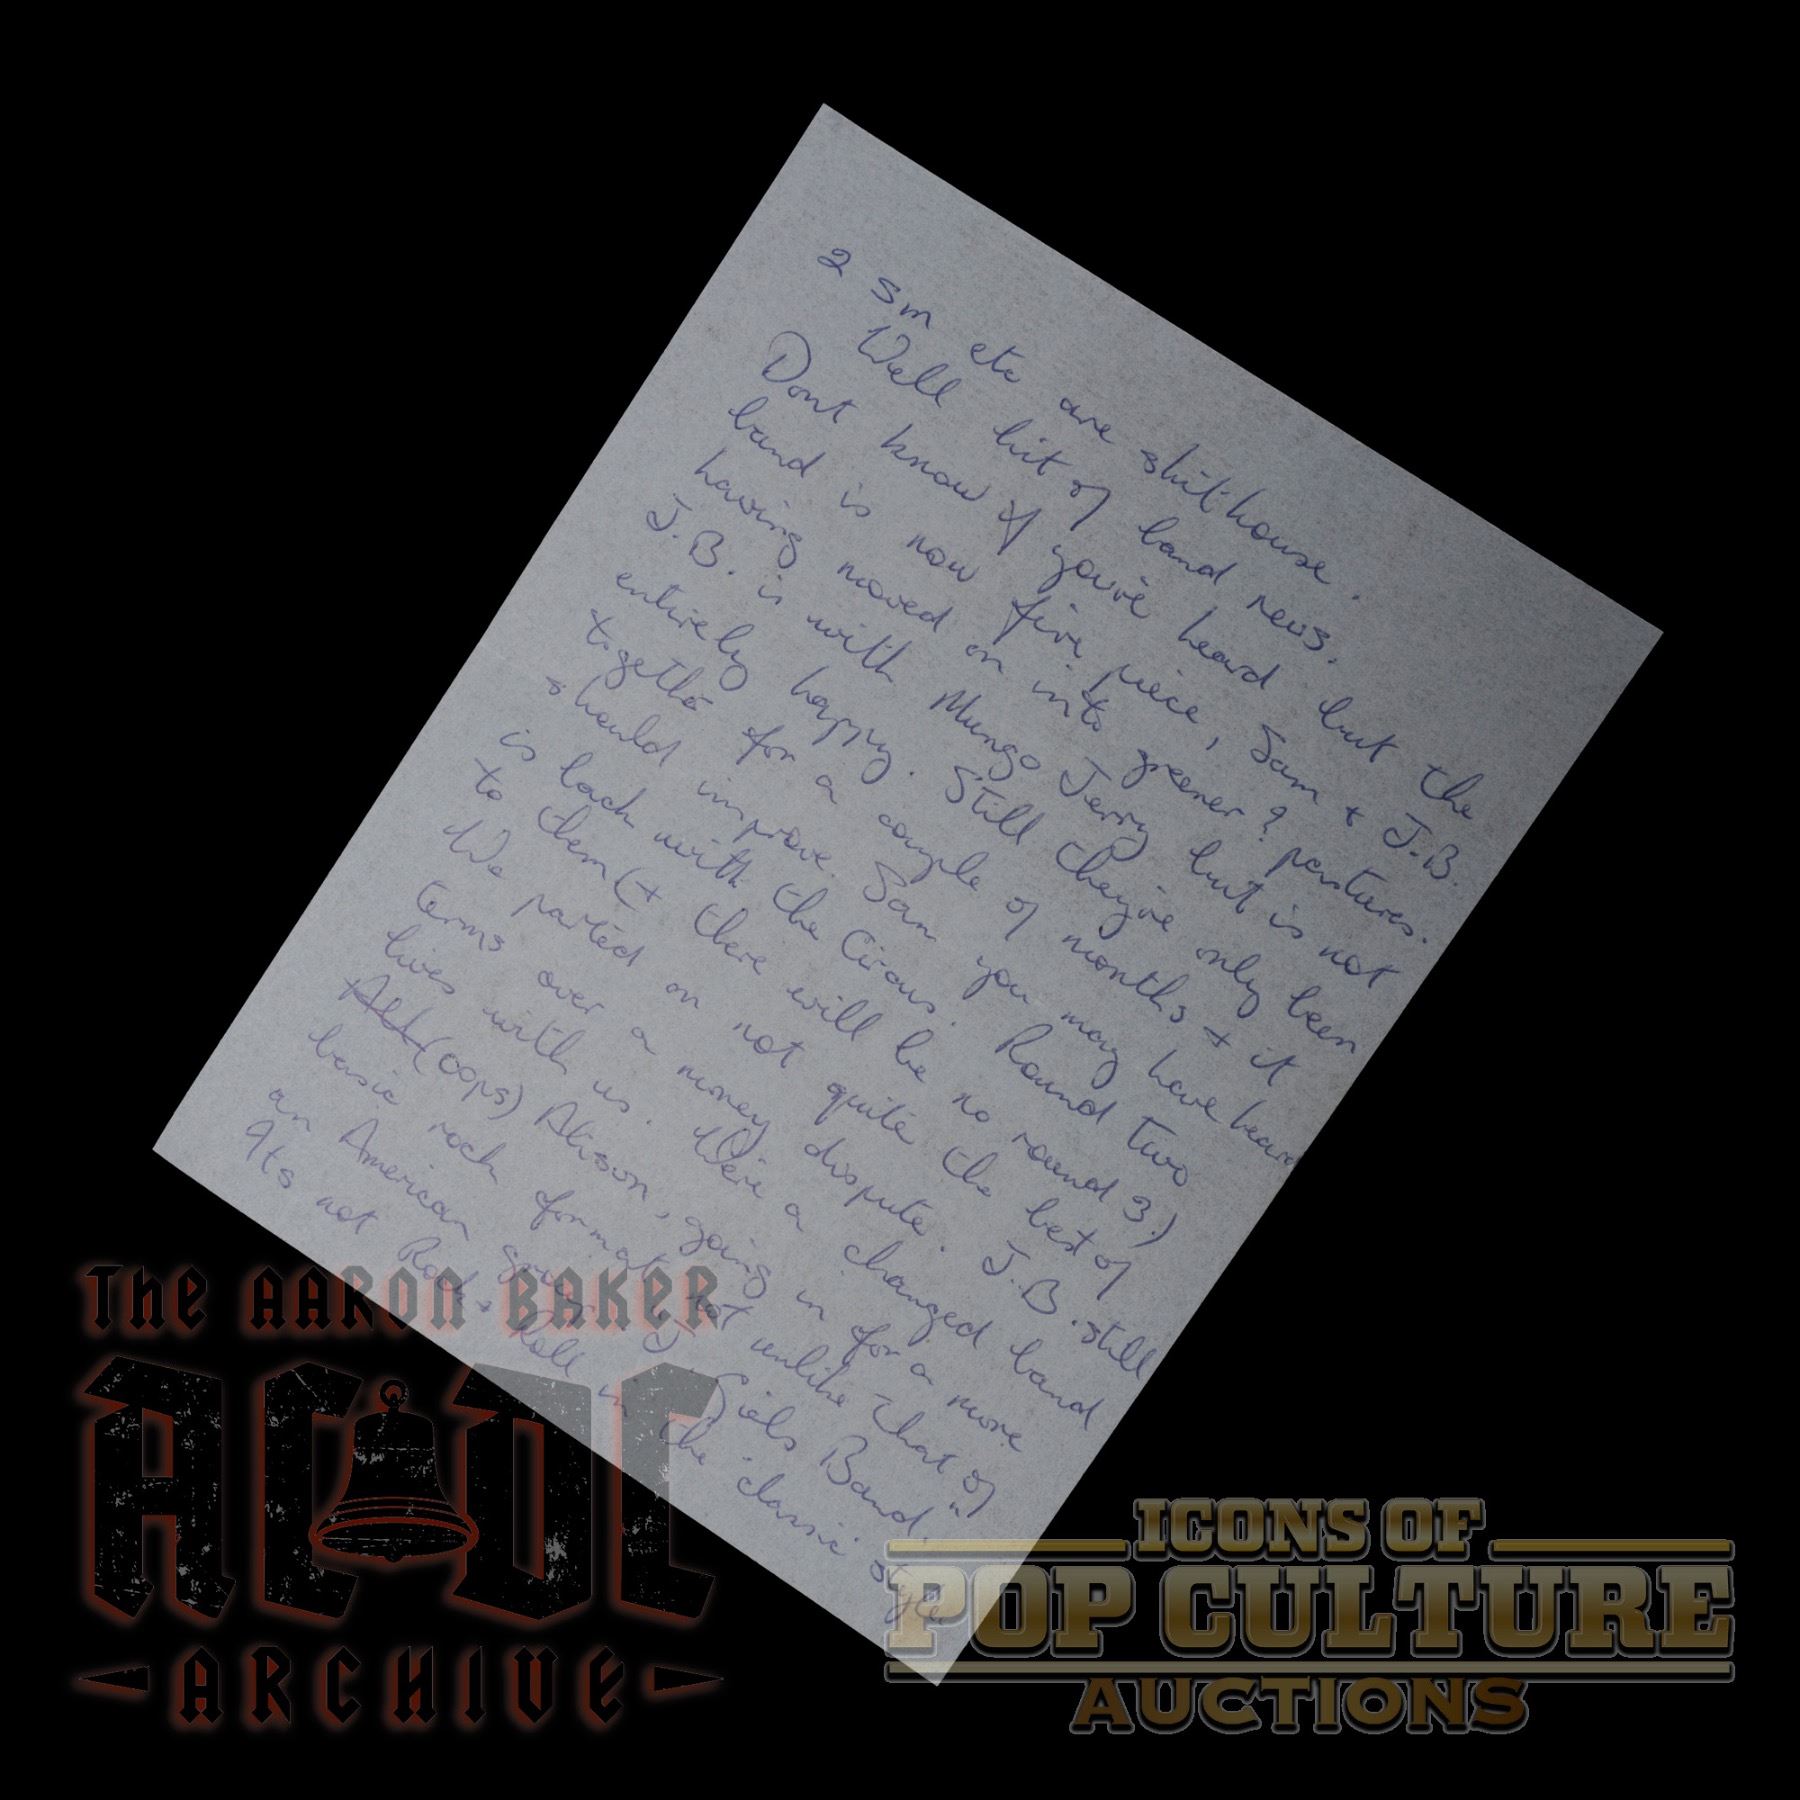 2 SM etc are shit house.
Well bit of band news.
Dont know if you've heard but the
band is now five piece, Sam + J.B.
having moved on into greener? pastures.
J.B. is with Mungo Jerry but is not
entirely happy. Still they're only been
together for a couple of months + it
should improve. Sam you may have heard
is back with the Circus. Round two
to them (+ there will be no round 3.)
We parted on not quite the best of
terms over a money dispute. J.B. still
lives with us. We're a changed band
(oops) Alison, going in for a more
basic rock format not unlike that of
an American group "J Giels Band".
Its not Rock + Roll in the 'classic' style
The AARON BAKER
AC DC
ARCHIVE
ICONS OF
POP CULTURE
AUCTIONS